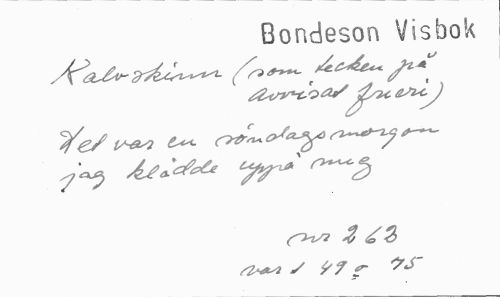 Bondeson Visbok
Kalvskinn (som tecken på
avvisat frieri)
Det var en söndagsmorgon
jag klädde uppå mig
nr 262
var t 49 o 75